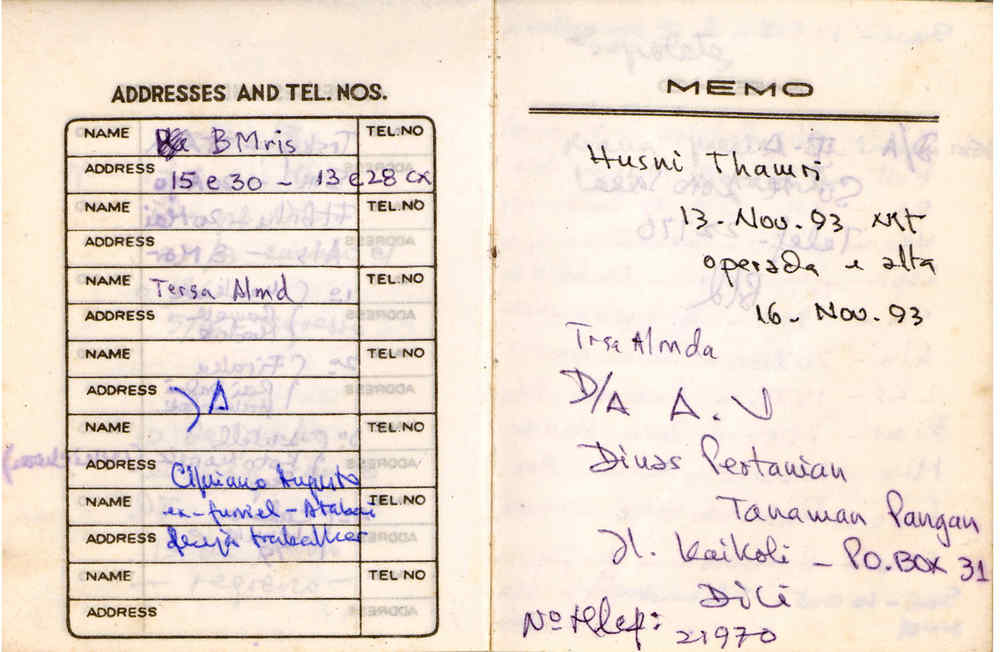 ADDRESSES AND TEL. NOS.
NAME B Mris TEL.NO
ADDRESS 15 e 30 - 13 e 28 cx
NAME TEL.NO
ADDRESS
NAME Tersa Almd TEL.NO
ADDRESS
NAME TEL.NO
ADDRESS A
NAME TEL.NO
ADDRESS Cipriano Augusto
NAME ex-furriel - Atabai TEL.NO
ADDRESS deseja trabalhar
NAME TEL.NO
ADDRESS
MEMO
Husni Thamri
13 - Nov. 93
operada e alta
16 - Nov. 93
Trsa Almda
D/A A. V
Dinas Pertanian
Tanaman Pangan
Jl. Kaikoli - P.O. BOX 31
Dili
Nº telef:
21970